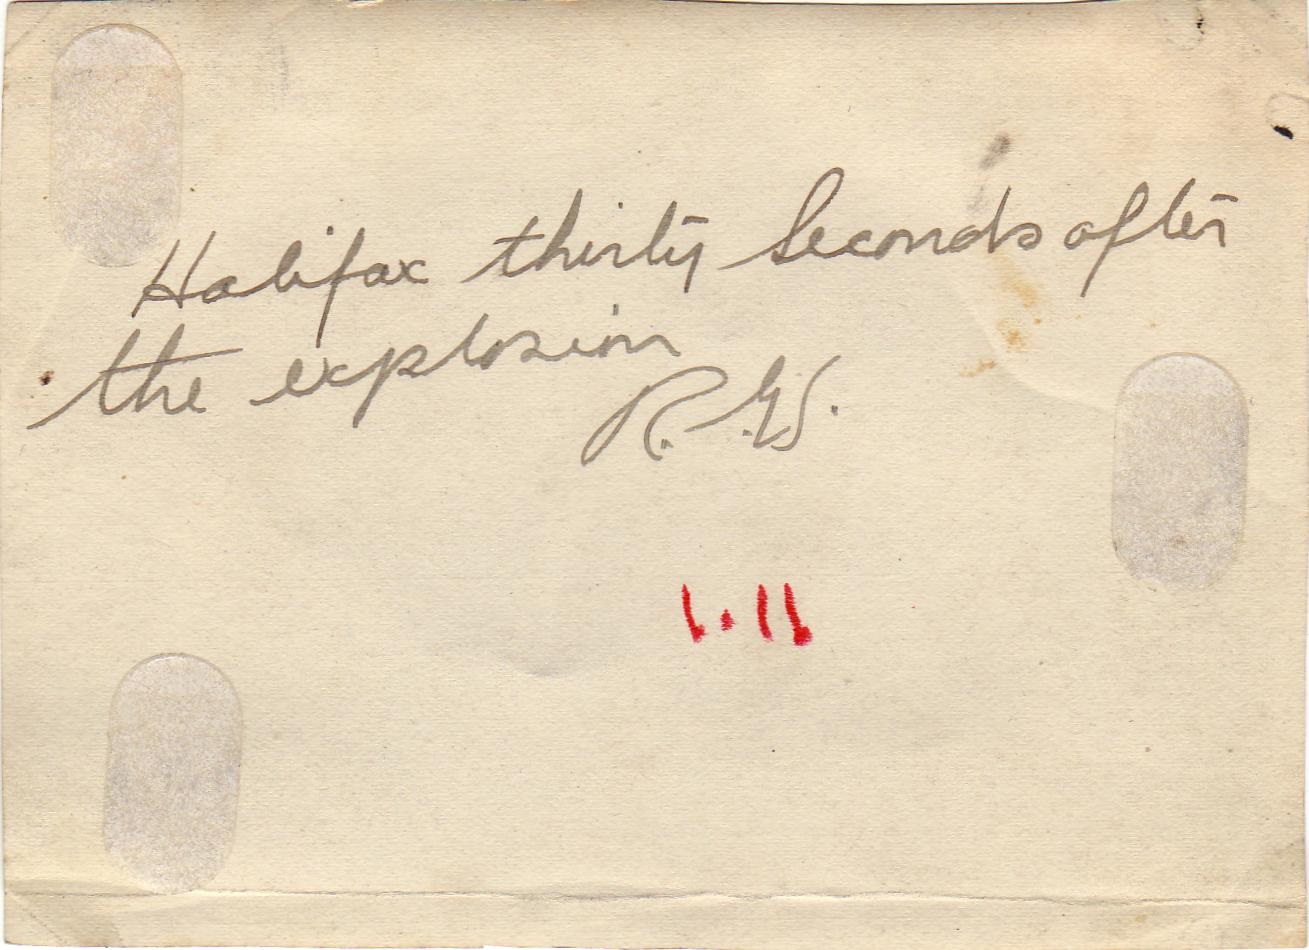 Halifax thirty Seconds after
the explosion
R.W.
1.11